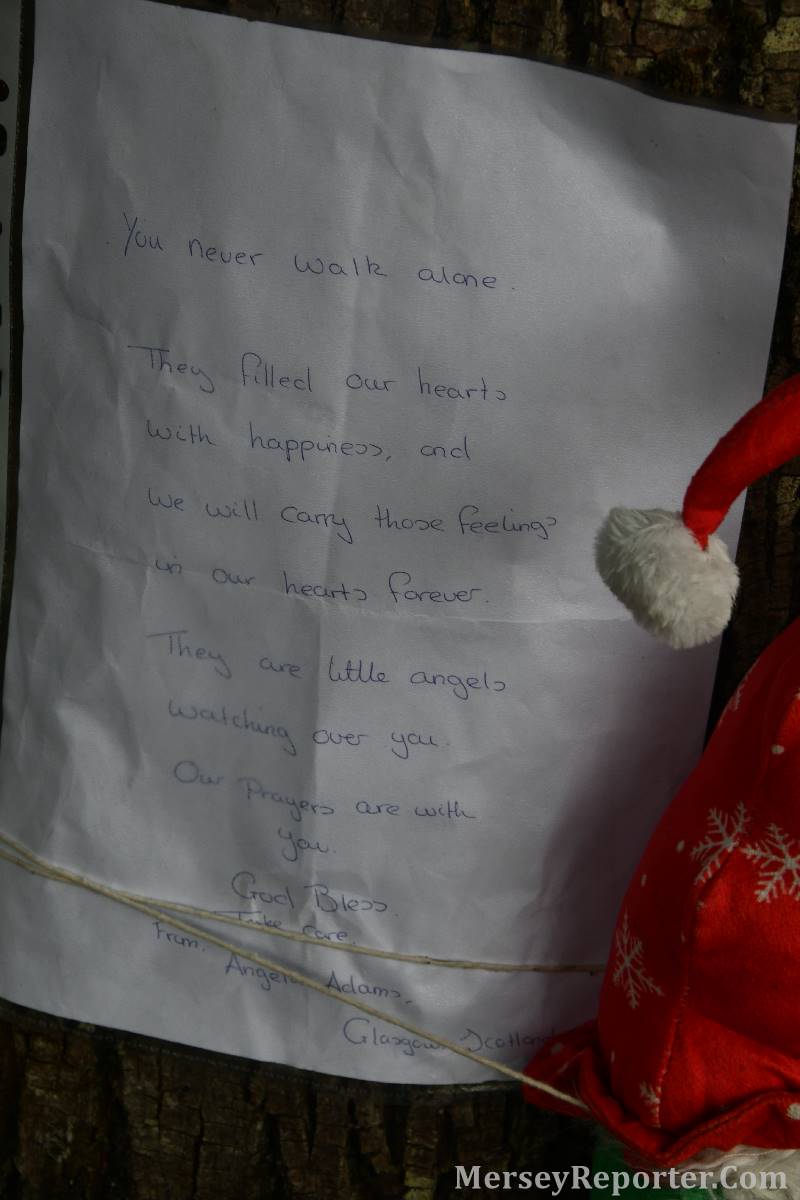 You never walk alone.
They filled our hearts
with happiness, and
we will carry those feelings
in our hearts forever.
They are little angels
watching over you.
Our Prayers are with
you.
God Bless.
Take Care.
From. Adams,
Glasgow Scotland
MerseyReporter.Com